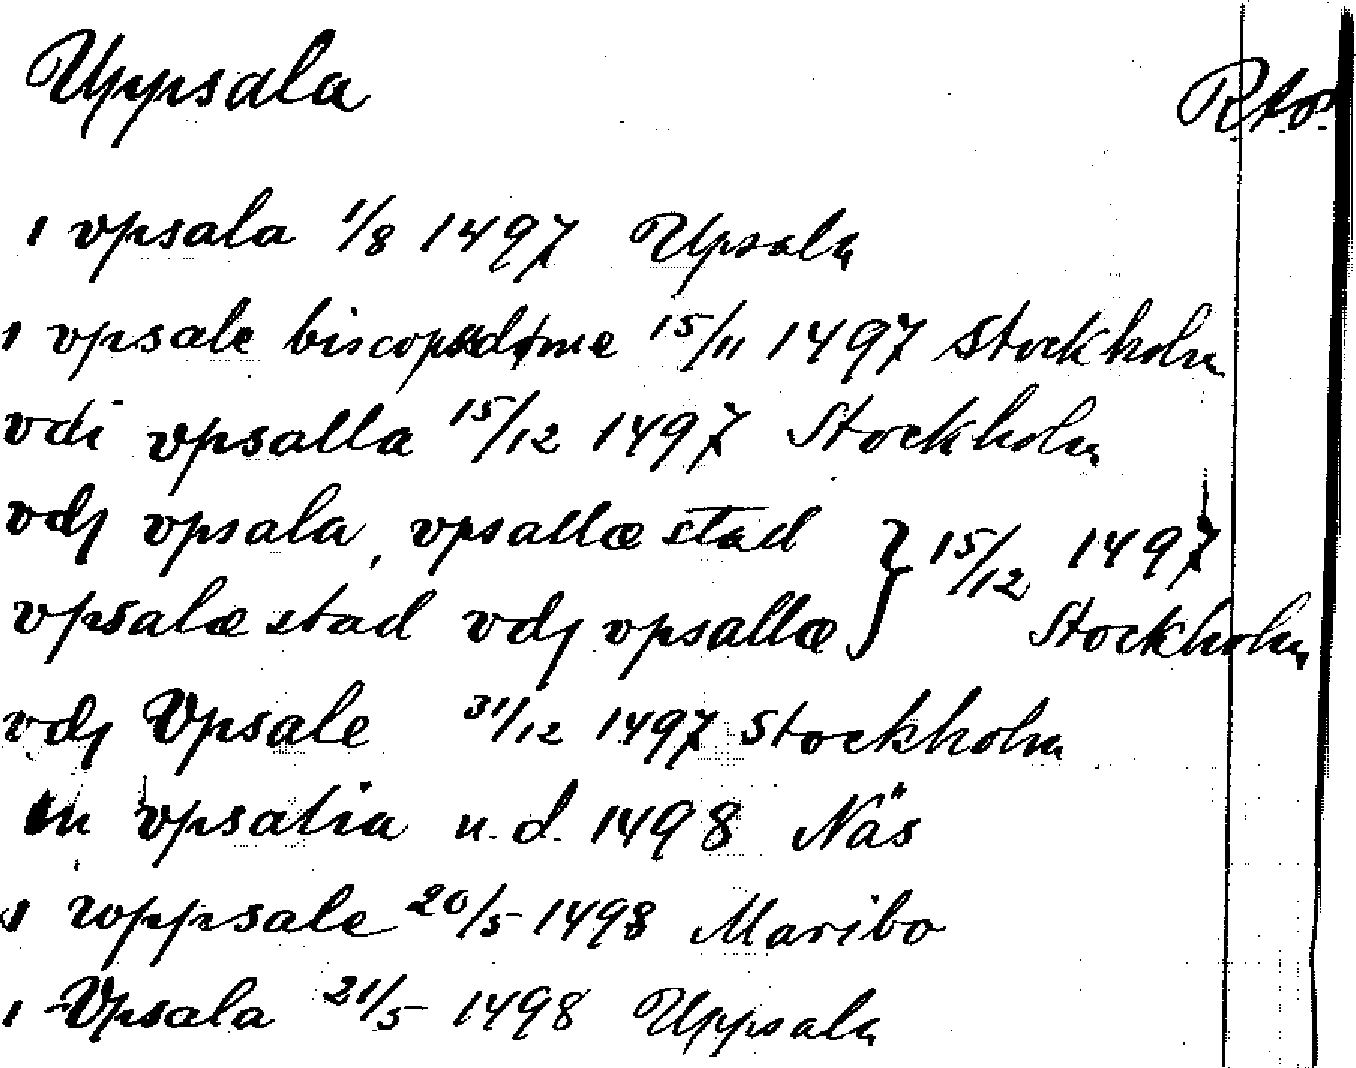 Uppsala Rtos.
i vpsala 1/8 1497 Upsala
i vpsale biscopsdøme 15/11 1497 Stockholm
vdi vpsalla 15/12 1497 Stockholm
vdj vpsala, vpsallæ stad } 15/12 1497
vpsalæ stad vdj vpsallæ Stockholm
vdj Vpsale 31/12 1497 Stockholm
in vpsalia u.d. 1498 Näs
i woppsale 20/5 1498 Maribo
i Vpsala 21/5 1498 Uppsala